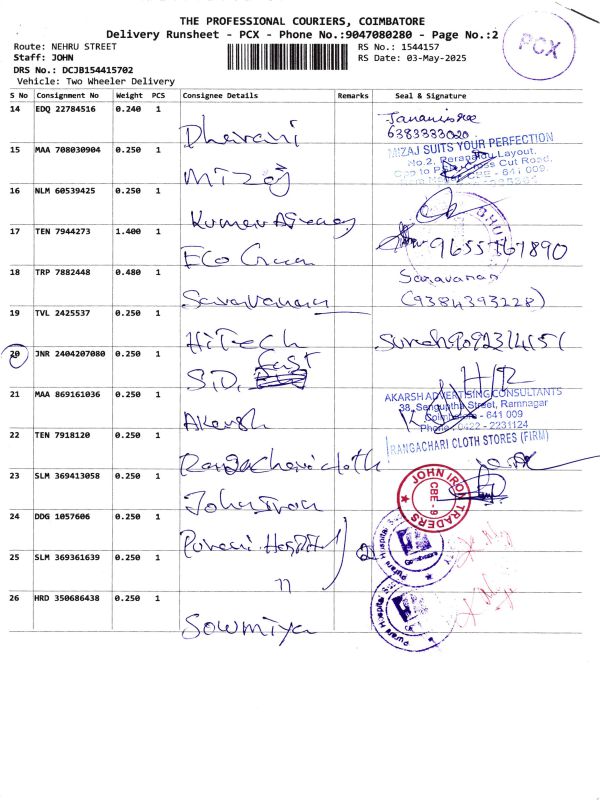 THE PROFESSIONAL COURIERS, COIMBATORE
Delivery Runsheet - PCX - Phone No.:9047080280 - Page No.:2
Route: NEHRU STREET
RS No.: 1544157
Staff: JOHN
RS Date: 03-May-2025
DRS No.: DCJB154415702
Vehicle: Two Wheeler Delivery
PCX
S No Consignment No Weight PCS Consignee Details Remarks Seal & Signature
14 EDQ 22784516 0.240 1 Dharani
6383333020
15 MAA 708030904 0.250 1 Mizaj
MIZAJ SUITS YOUR PERFECTION
No.2, Layout,
Cut Road,
CBE - 641 009.
16 NLM 60539425 0.250 1
17 TEN 7944273 1.400 1 Eco Green
9655767890
18 TRP 7882448 0.480 1 Saravanan
Saravanan
(9384393228)
19 TVL 2425537 0.250 1 HiTech
20 JNR 2404207080 0.250 1 S.D. East
21 MAA 869161036 0.250 1 Akarsh
AKARSH ADVERTISING CONSULTANTS
38, Senguptha Street, Ramnagar
Coimbatore - 641 009
Phone: 0422 - 2231124
22 TEN 7918120 0.250 1 Rangachari cloth
RANGACHARI CLOTH STORES (FIRM)
23 SLM 369413058 0.250 1 John Iron
JOHN IRON TRADERS
CBE - 9
24 DDG 1057606 0.250 1 Purani Hospital
2
Purani Hospital
Coimbatore
25 SLM 369361639 0.250 1 "
Purani Hospital
26 HRD 350686438 0.250 1 Sowmiya